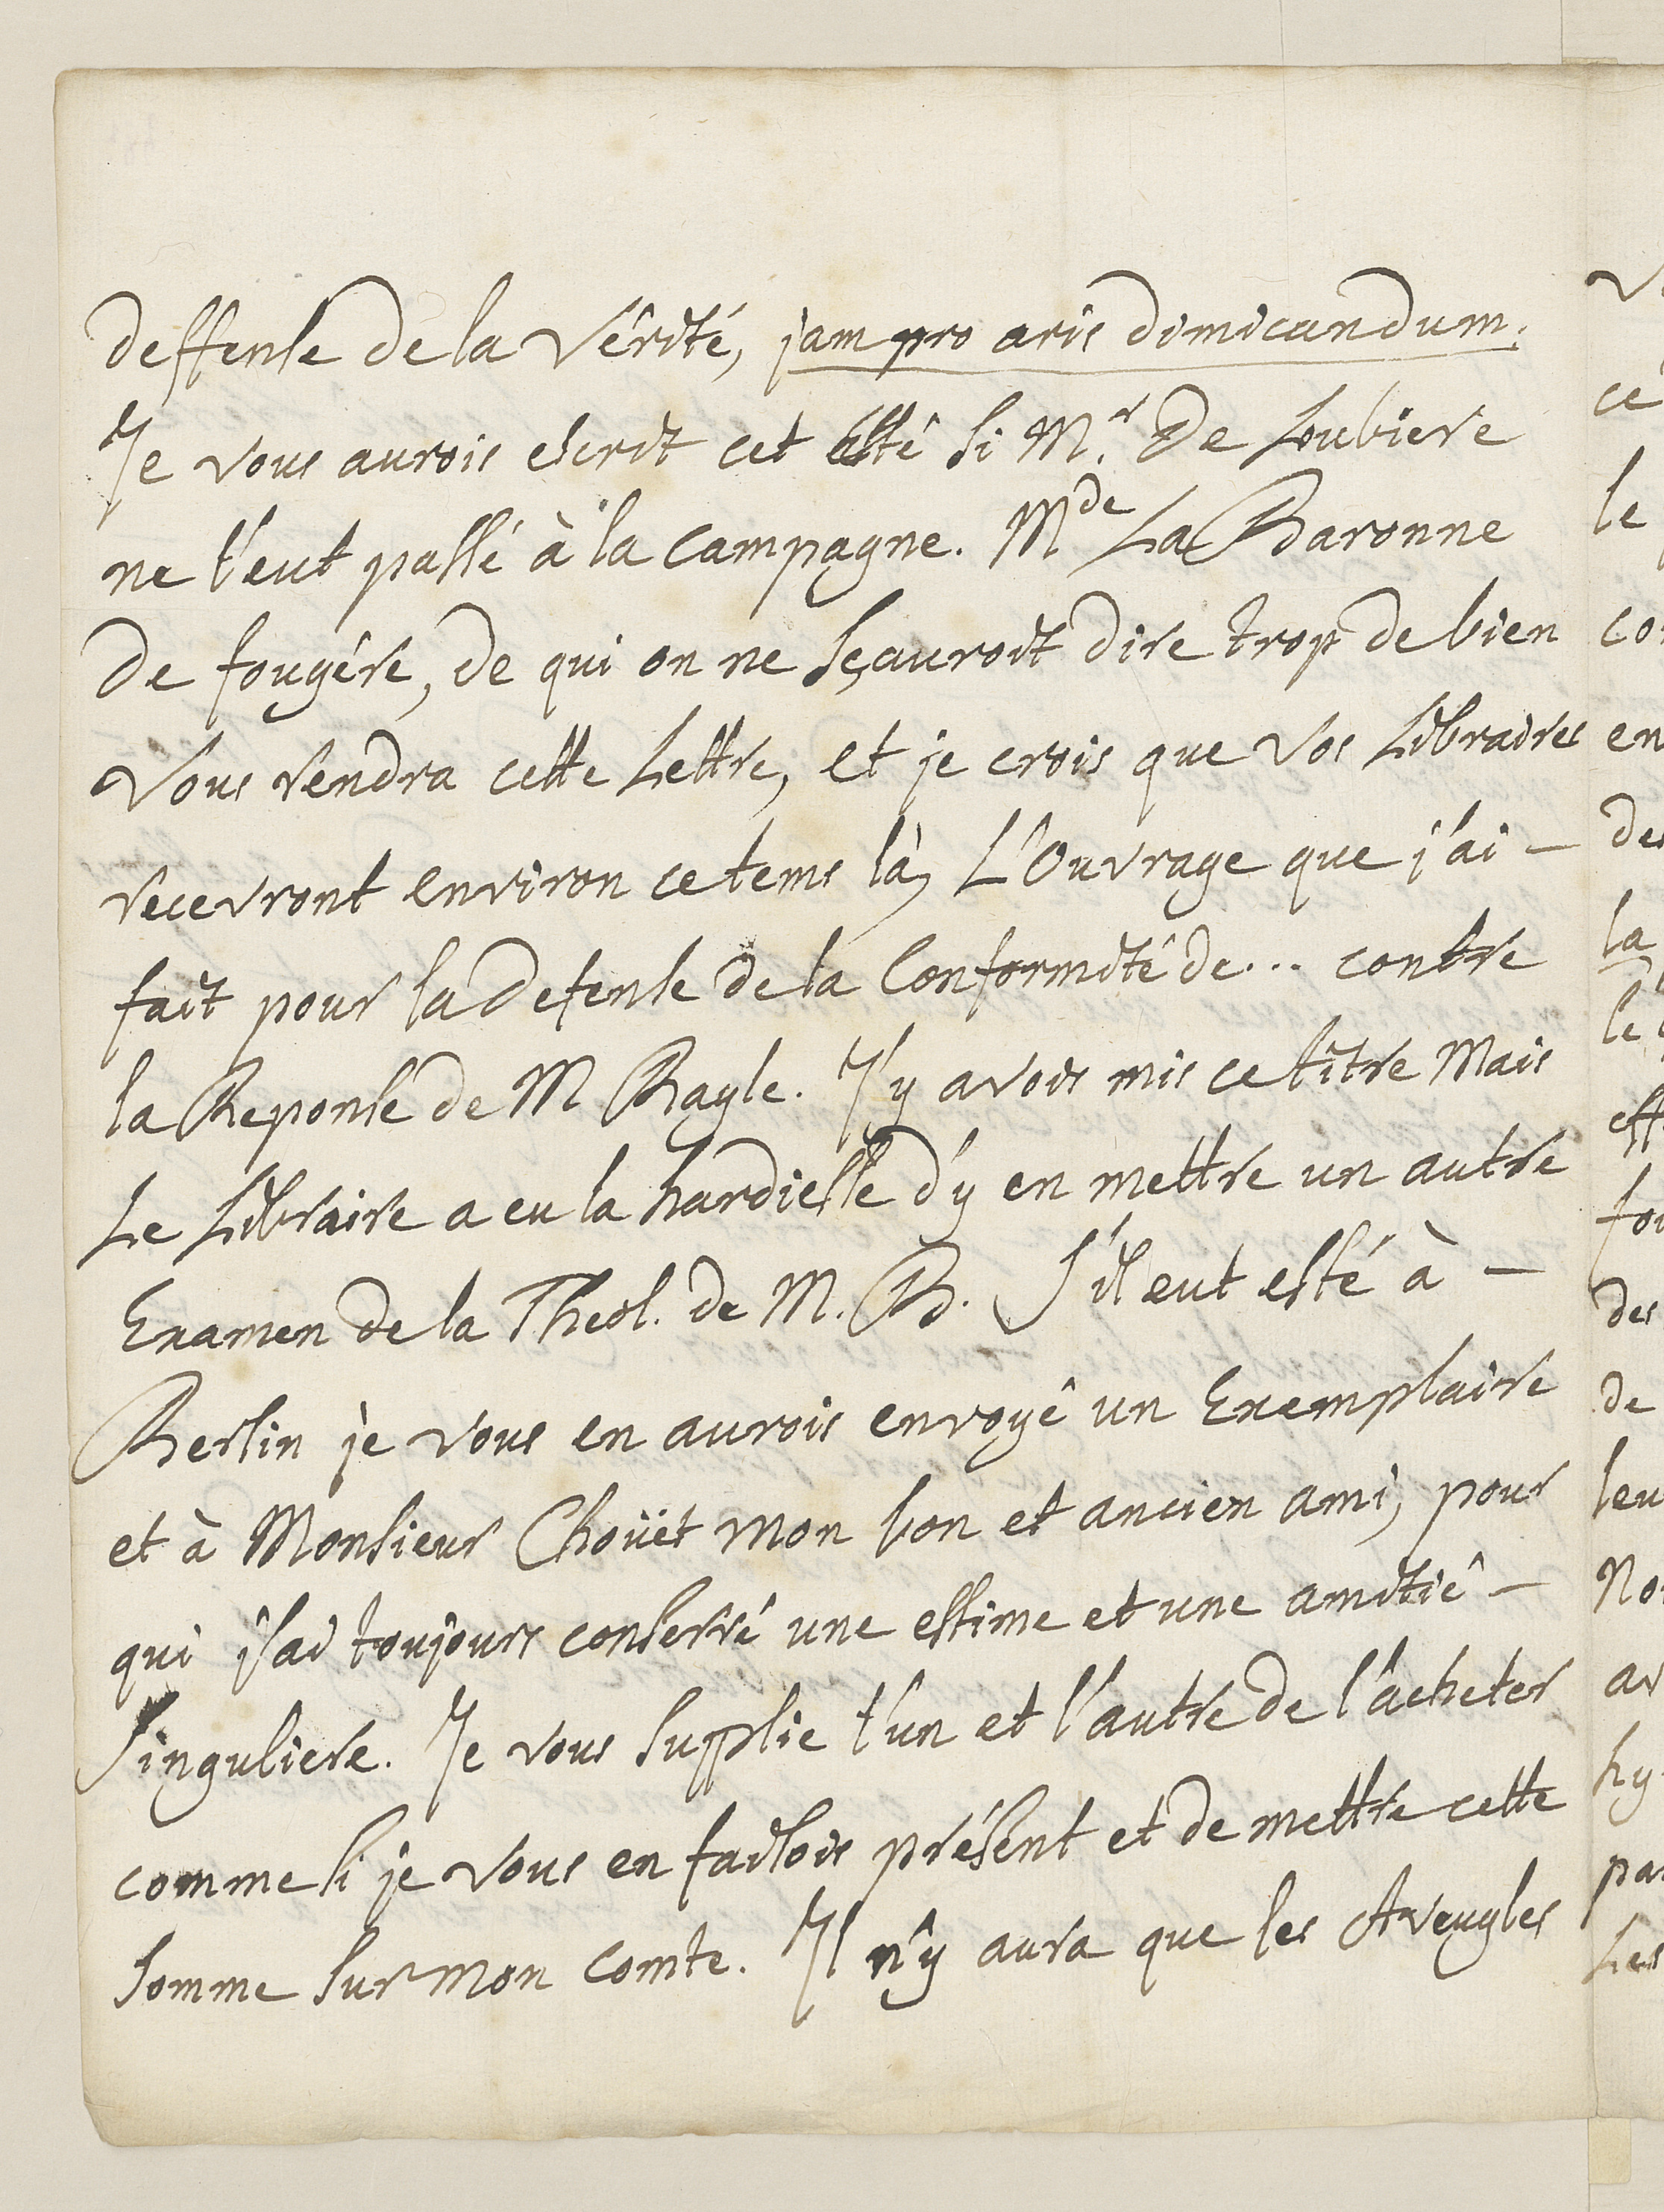 deffense de la Vérité, jam pro aris dimicandum.
Je vous aurois escrit cet Esté si Mr. De Loubiere
ne l'eut passé à la campagne. Mde La Baronne
de fougére, de qui on ne sçauroit dire trop de bien
Vous rendra cette Lettre, et je crois que vos Libraires
recevront environ ce tems là, L'Ouvrage que j'ai –
fait pour la Defense de la Conformité de... contre
la Reponse de M Bayle. J'y avois mis ce titre Mais
Le Libraire a eu la hardiesse d'y en mettre un autre
Examen de la Theol. de M. B. S'il eut esté à –
Berlin je vous en aurois envoyé un Exemplaire
et à Monsieur Choüet mon bon et ancien ami, pour
qui j'ai toujours conservé une estime et une amitié –
Singuliere. Je vous supplie l'un et l'autre de l'acheter
comme si je vous en faisois présent et de mettre cette
somme sur mon comte. Il n'y aura que les Aveugles
ce
le
en
la
des
de
hy
Les